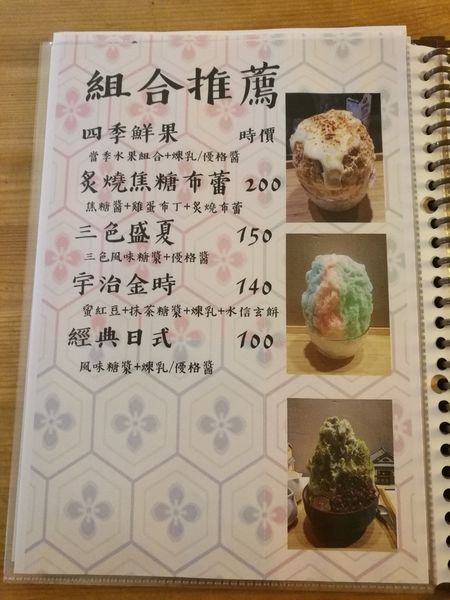 組合推薦
四季鮮果 時價
當季水果組合+煉乳/優格醬
炙燒焦糖布蕾 200
焦糖醬+雞蛋布丁+炙燒布蕾
三色盛夏 150
三色風味糖漿+優格醬
宇治金時 140
蜜紅豆+抹茶糖漿+煉乳+水信玄餅
經典日式 100
風味糖漿+煉乳/優格醬